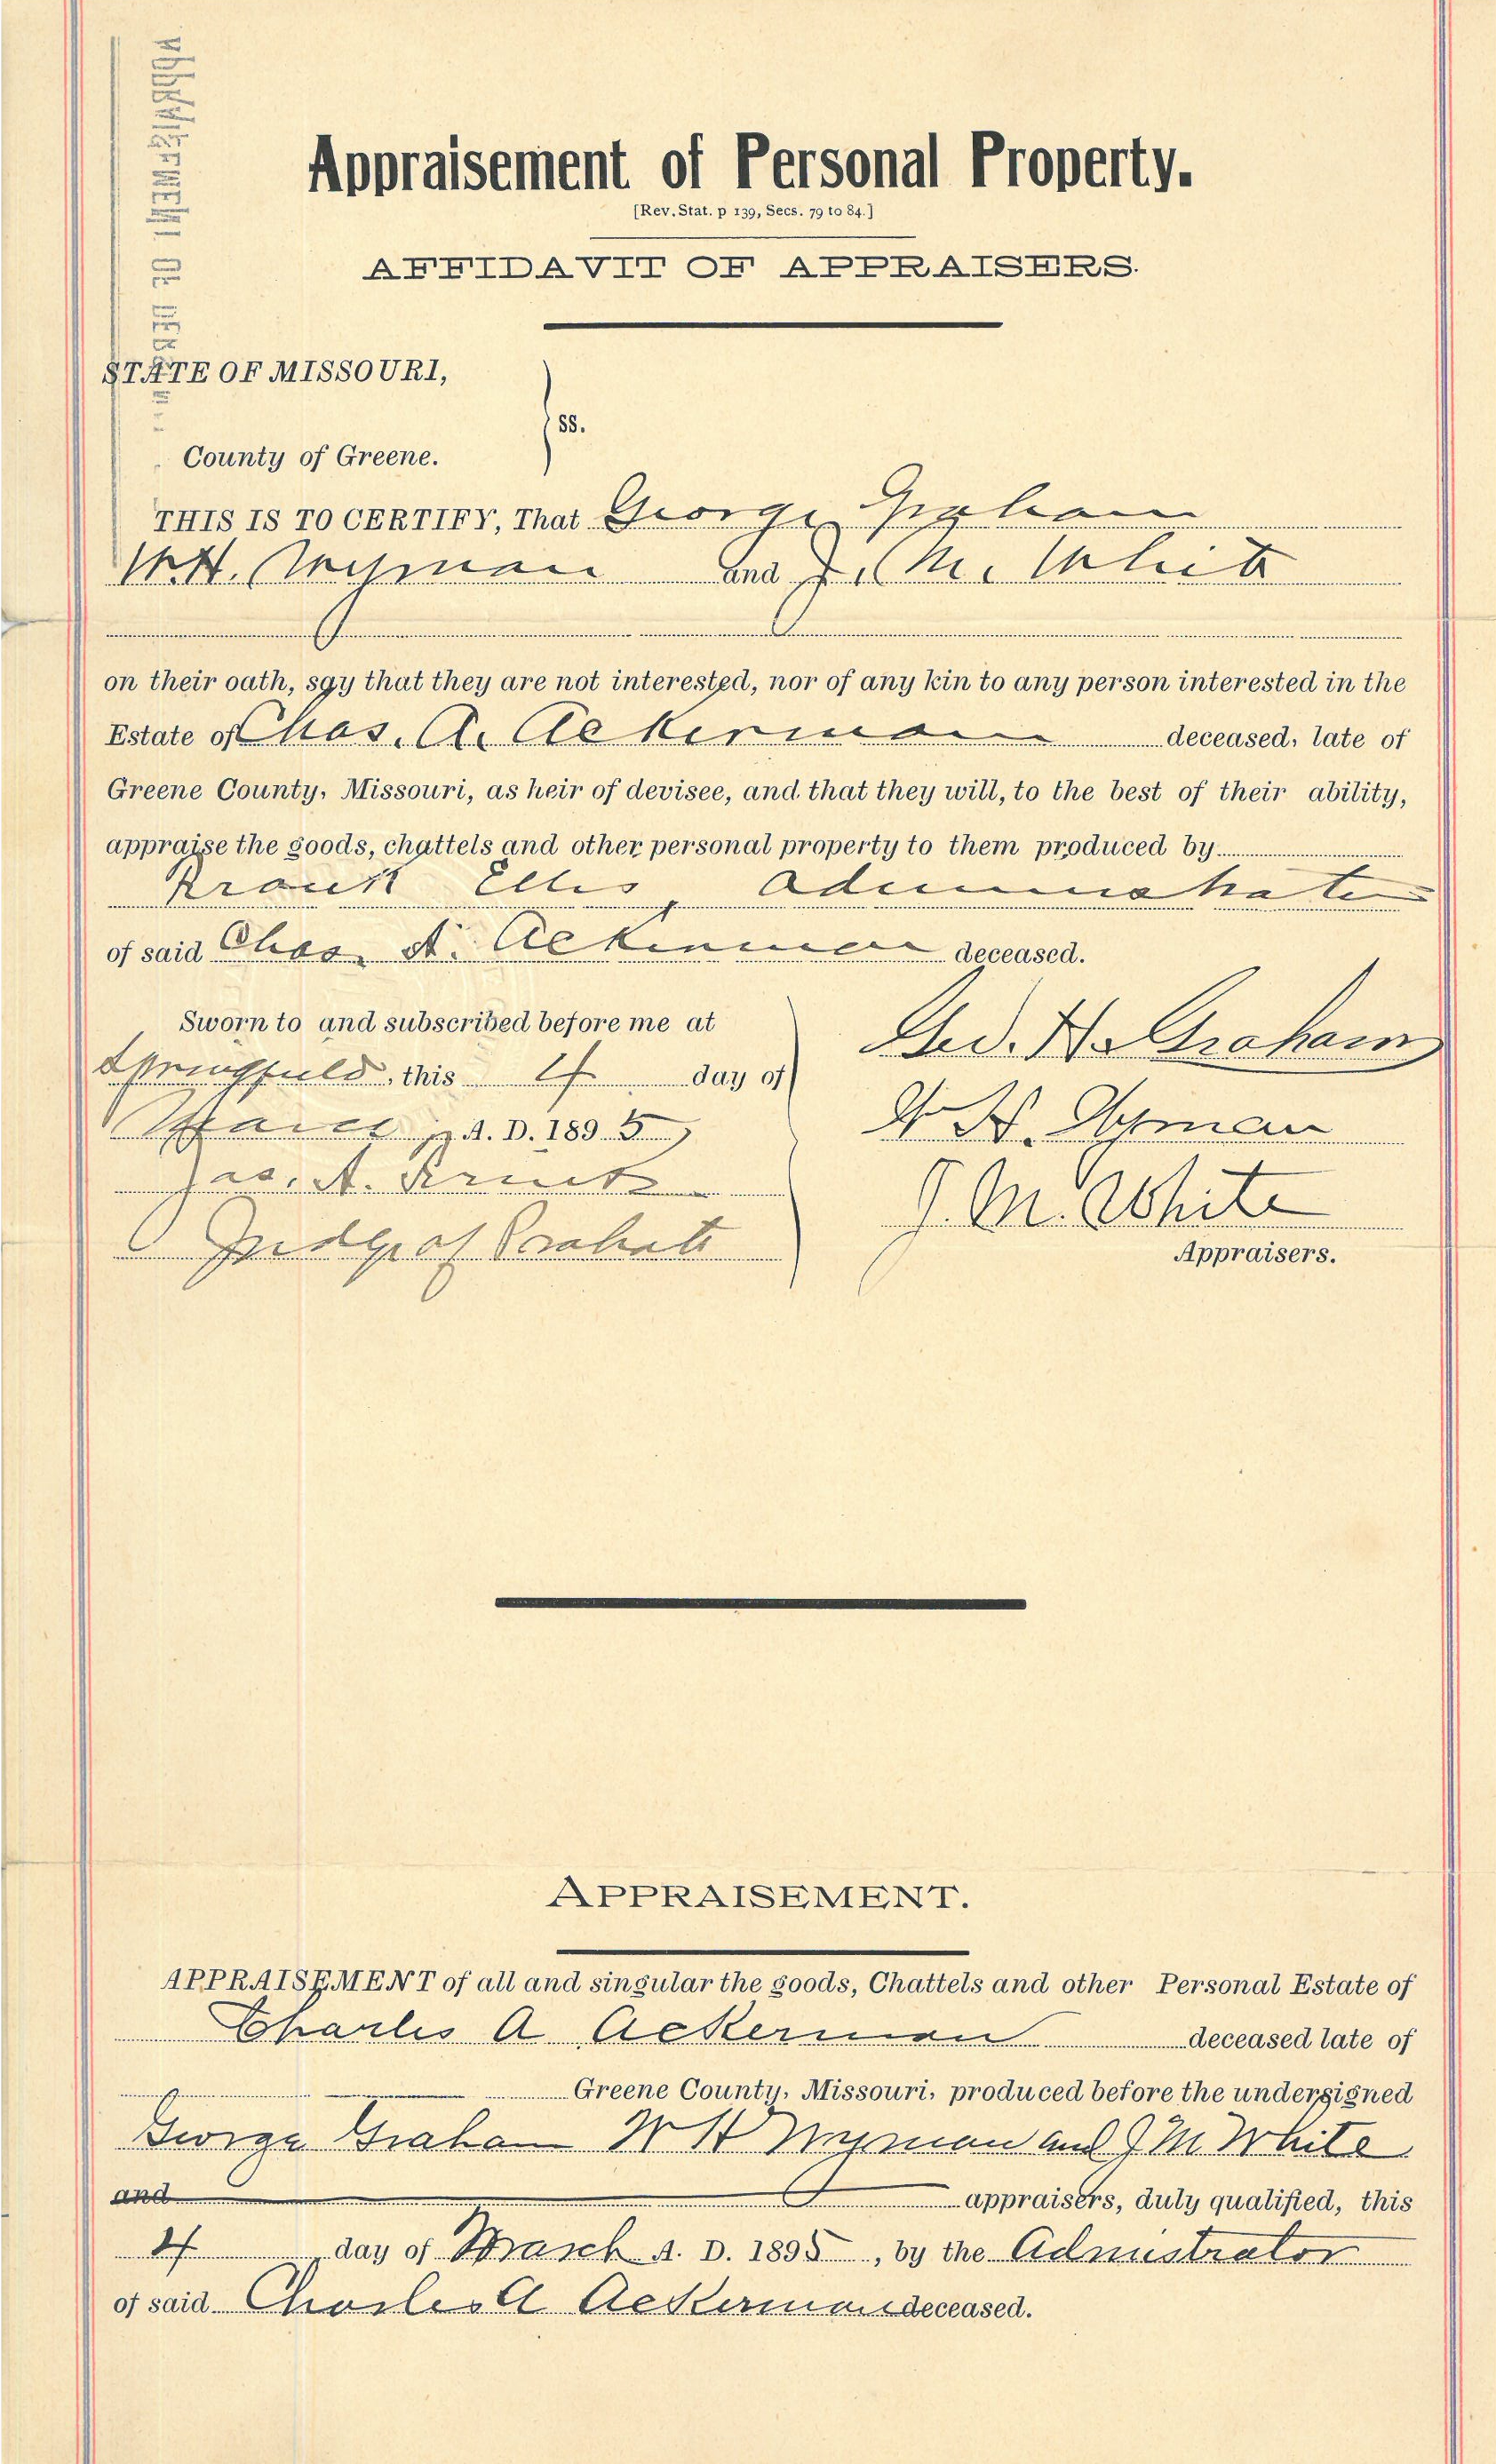 Appraisement of Personal Property.
[Rev. Stat. p 139, Secs. 79 to 84.]
AFFIDAVIT OF APPRAISERS.
STATE OF MISSOURI,
ss.
County of Greene.
THIS IS TO CERTIFY, That George Graham
W.H. Wyman and J. M. White
on their oath, sgy that they are not interested, nor of any kin to any person interested in the
Estate of Chas. A. Ackerman deceased, late of
Greene County, Missouri, as heir of devisee, and that they will, to the best of their ability,
appraise the goods, chattels and other personal property to them produced by
Frank Ellis Administrator
of said Chas. A. Ackerman deceased.
Sworn to and subscribed before me at
Springfield, this 4 day of
March A. D. 1895
Jas. A.
Judge of Probate
Geo. H. Graham
W H. Wyman
J. M. White
Appraisers.
APPRAISEMENT.
APPRAISEMENT of all and singular the goods, Chattels and other Personal Estate of
Charles A Ackerman deceased late of
Greene County, Missouri, produced before the undersigned
George Graham W H Wyman and J M White
and appraisers, duly qualified, this
4 day of March A. D. 1895, by the Admistrator
of said Charles A Ackerman deceased.